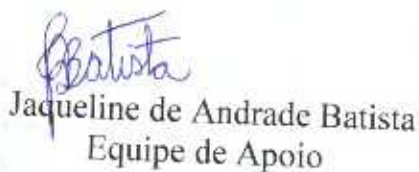 JBatista
Jaqueline de Andrade Batista
Equipe de Apoio